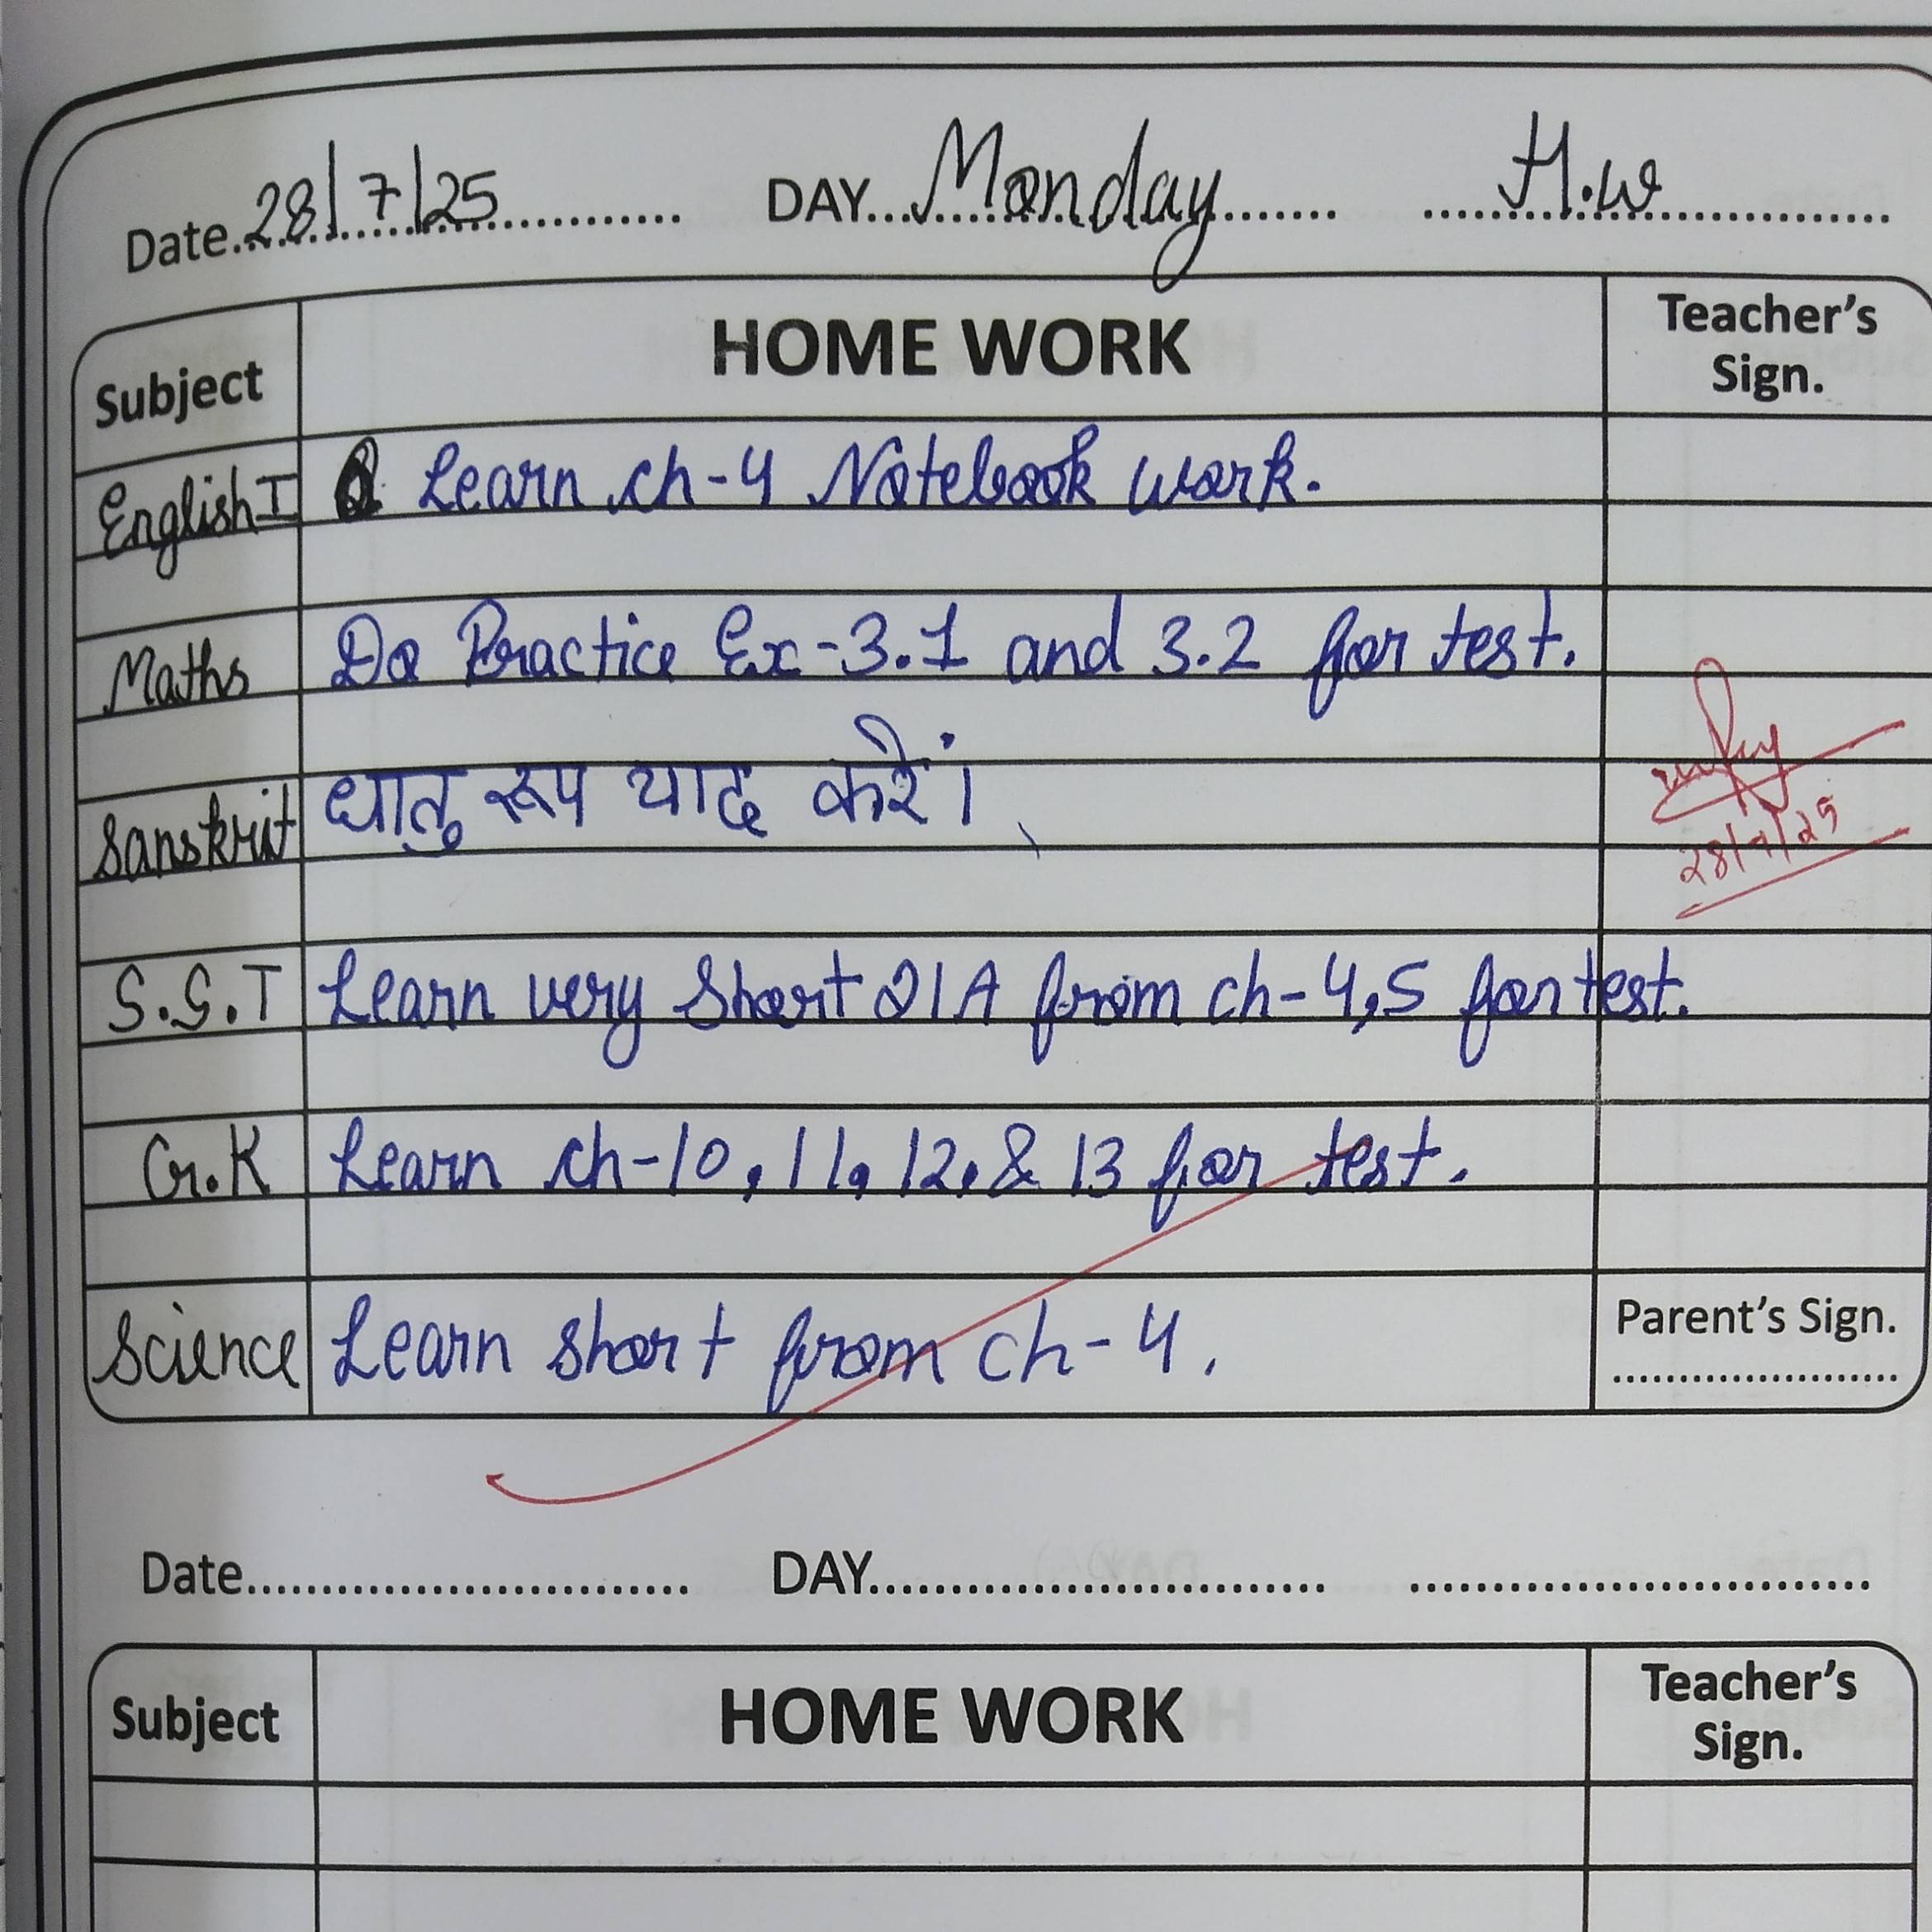 Date 28/7/25 DAY Monday H.w
Subject HOME WORK Teacher's Sign.
English I Learn ch-4 Notebook work.
Maths Do Practice Ex-3.1 and 3.2 for test.
Sanskrit धातु रूप याद करें।
28/7/25
S.S.T Learn very Short Q/A from ch-4,5 for test.
G.K Learn ch-10, 11, 12, & 13 for test.
Science Learn short from ch-4. Parent's Sign.
Date DAY
Subject HOME WORK Teacher's Sign.